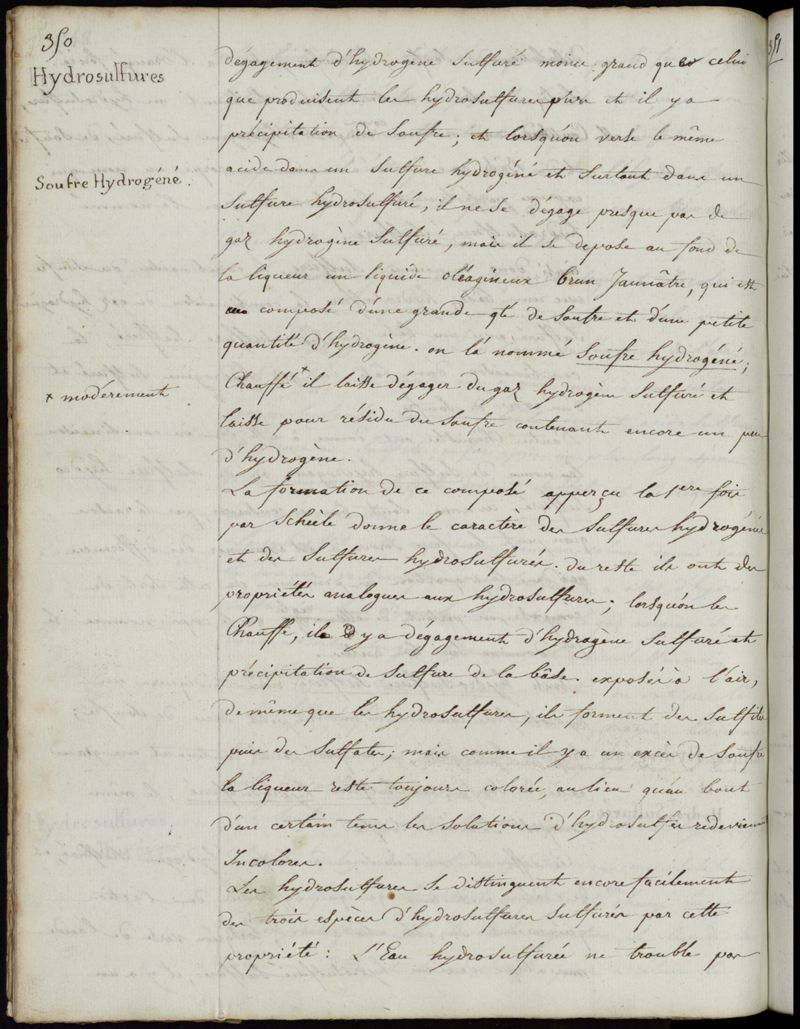 350
Hydrosulfures
dégagement d'hydrogène sulfuré moins grand que celui
que produisent les hydrosulfures purs et il y a
précipitation de soufre; et lorsqu'on verse le même
Soufre Hydrogéné.
acide dans un sulfure hydrogéné et surtout dans un
sulfure hydrosulfuré, il ne se dégage presque pas de
gaz hydrogène sulfuré, mais il se depose au fond de
la liqueur un liquide oléagineux brun Jaunâtre, qui est
composé d'une grande qté de soufre et d'une petite
quantité d'hydrogène. on l'a nommé soufre hydrogéné;
x modérement
Chauffé x il laisse dégager du gaz hydrogène sulfuré et
laisse pour résidu du soufre contenant encore un peu
d'hydrogène.
La formation de ce composé apperçu la 1ere fois
par Schèele donne le caractère des sulfures hydrogénés
et des sulfures hydrosulfurés. du reste ils ont des
propriétés analogues aux hydrosulfures; lorsqu'on les
Chauffe, il y a dégagement d'hydrogène sulfuré et
précipitation de sulfure de la bâse. exposés à l'air,
de même que les hydrosulfures, ils forment des sulfites
puis des sulfates; mais comme il y a un excès de soufre
la liqueur reste toujours colorée, au lieu qu'au bout
d'un certain tems les solutions d'hydrosulfes redeviennent
Incolores.
Les hydrosulfures se distinguent encore facilement
des trois espèces d'hydrosulfures sulfurés par cette
propriété: L'Eau hydrosulfurée ne trouble pas
351